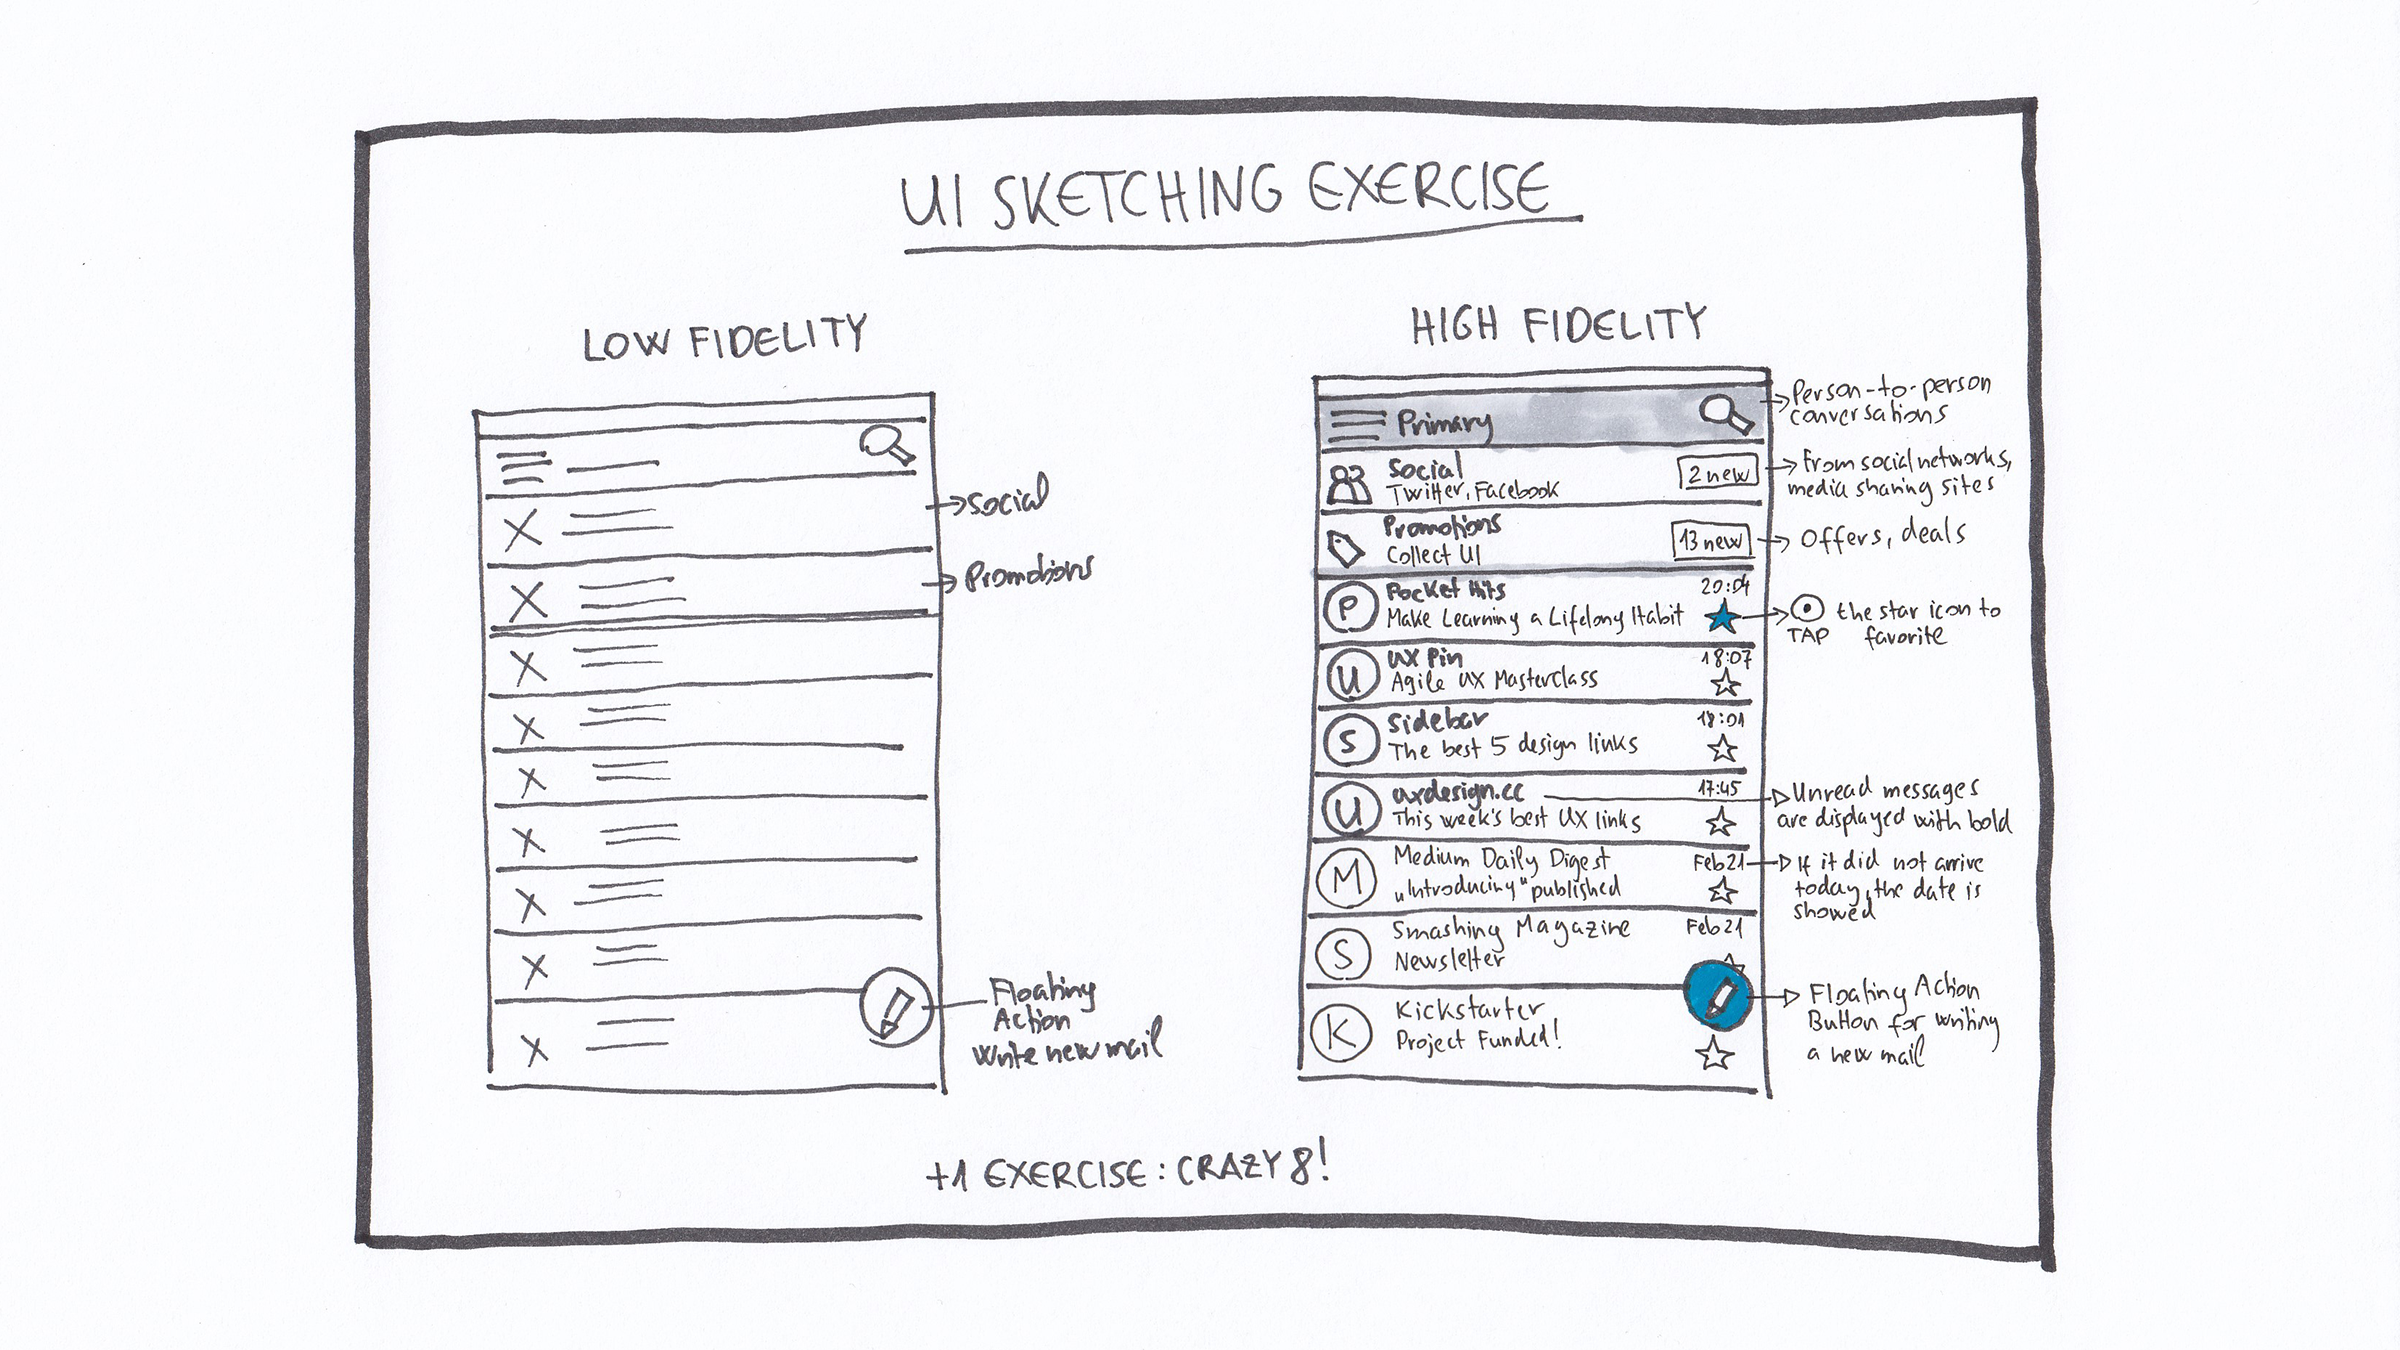 UI SKETCHING EXERCISE
LOW FIDELITY
Social
Promotions
Floating
Action
Write new mail
HIGH FIDELITY
Primary
Person-to-person
conversations
Social
Twitter, Facebook
2 new
From social networks,
media sharing sites
Promotions
Collect UI
13 new
Offers, deals
P
Pocket Hits
20:04
Make Learning a Lifelong Habit
TAP
the star icon to
favorite
U
UX Pin
18:07
Agile UX Masterclass
S
Sidebar
18:01
The best 5 design links
U
uxdesign.cc
17:45
This week's best UX links
Unread messages
are displayed with bold
M
Medium Daily Digest
Feb 21
„Introducing" published
If it did not arrive
today, the date is
showed
S
Smashing Magazine
Feb 21
Newsletter
K
Kickstarter
Project Funded!
Floating Action
Button for writing
a new mail
+1 EXERCISE: CRAZY 8!